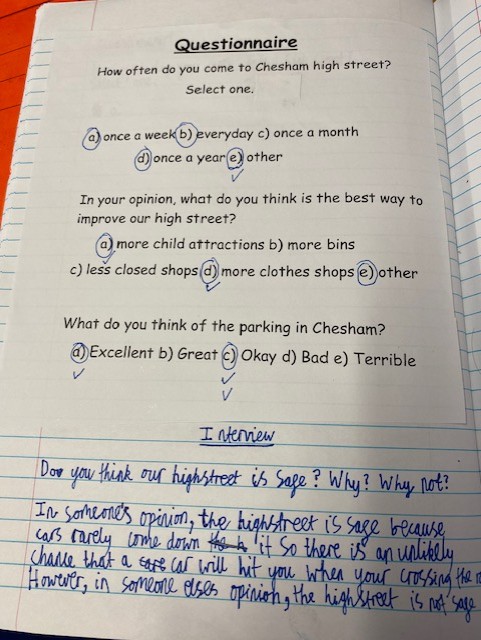 Questionnaire
How often do you come to Chesham high street?
Select one.
a) once a week b) everyday c) once a month
d) once a year e) other
In your opinion, what do you think is the best way to
improve our high street?
a) more child attractions b) more bins
c) less closed shops d) more clothes shops e) other
What do you think of the parking in Chesham?
a) Excellent b) Great c) Okay d) Bad e) Terrible
Interview
Do you think our highstreet is safe? Why? Why not?
In someone's opinion, the highstreet is safe because
cars rarely come down it so there is an unlikely
chance that a car will hit you when your crossing the
However, in someone elses opinion, the highstreet is not safe